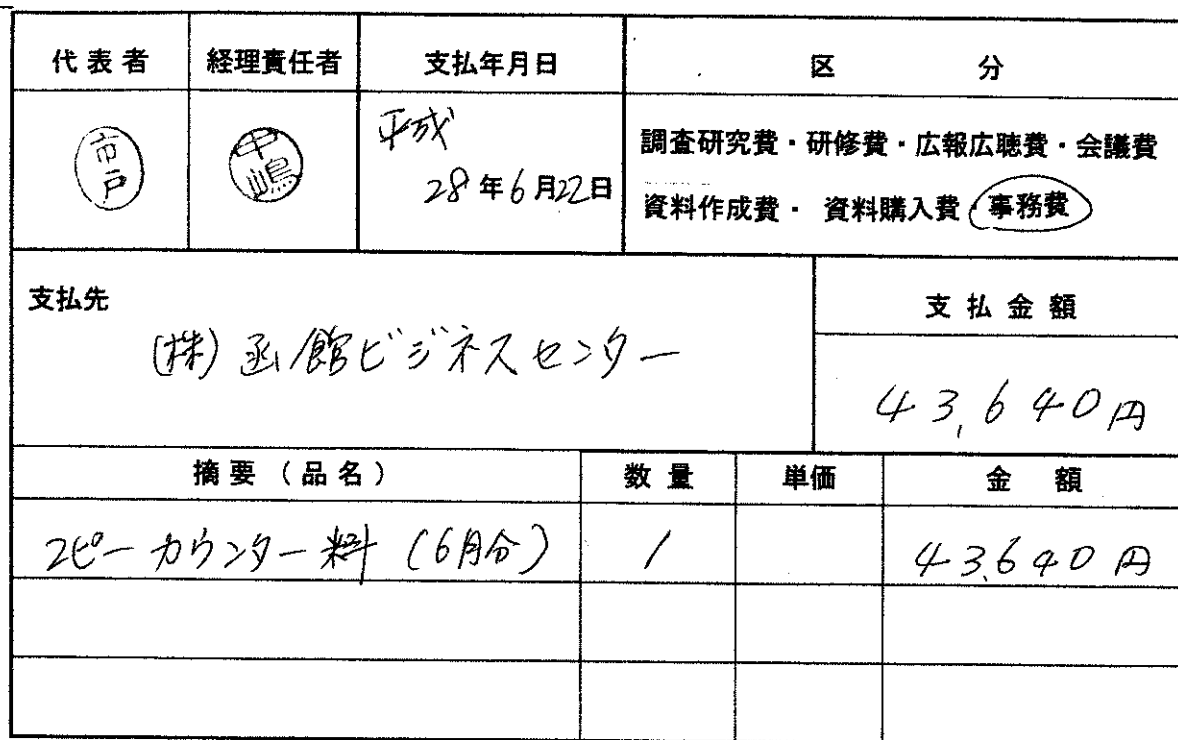 代表者 経理責任者 支払年月日 区 分
市戸 中嶋 平成
28年6月22日
調査研究費・研修費・広報広聴費・会議費
資料作成費・ 資料購入費・事務費
支払先 支払金額
(株)函館ビジネスセンター
43,640円
摘要(品名) 数量 単価 金 額
コピーカウンター料(6月分) 1 43,640円